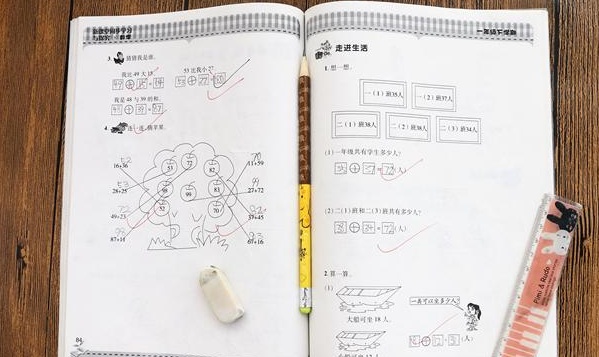 一年级下学期
3. 猜猜我是谁。
我比49大15。
53比我小27
49+15=64
53+27=80
我是48与39的和。
48+39=87
4. 连一连，摘苹果。
16+36
28+25
49+23
87+11
53
72
82
98
99
83
52
70
11+59
27+72
37+45
67+16
84
走进生活
1. 想一想。
一（1）班35人
一（2）班37人
二（1）班38人
二（2）班38人
二（3）班34人
（1）一年级共有学生多少人？
35+37=72（人）
（2）二（1）班和二（3）班共有多少人？
38+34=72（人）
2. 算一算。
（1）
一共可以坐多少人？
大船可坐18人。
（人）
Pimi & Rude